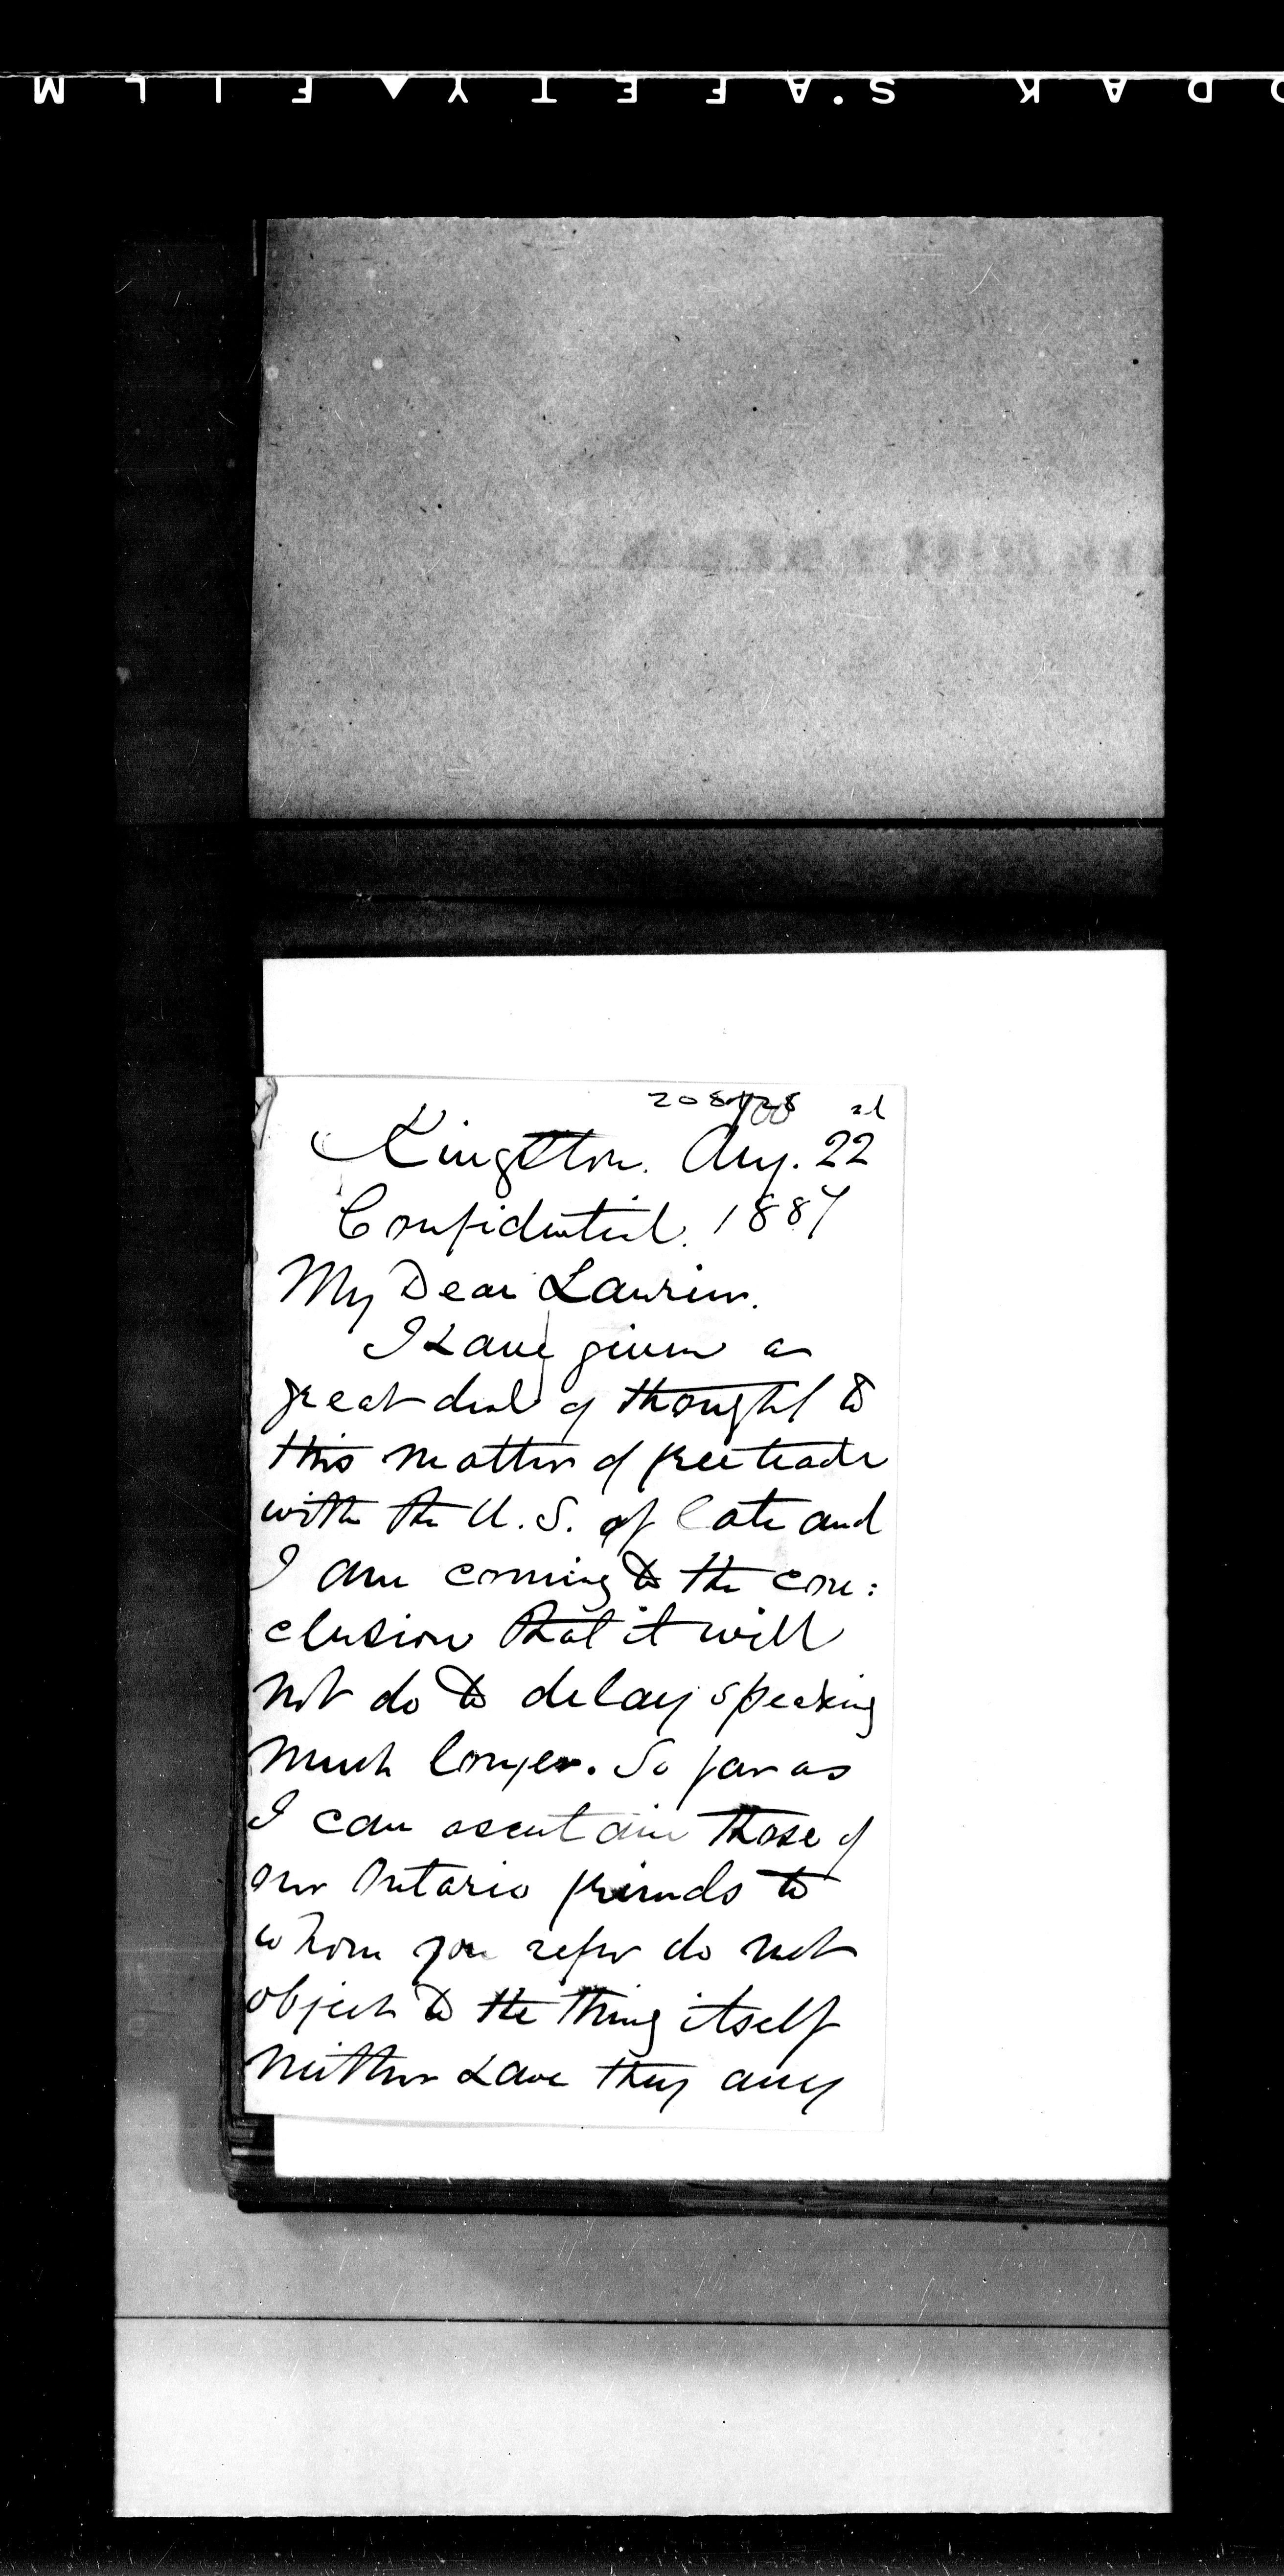 KODAK SAFETY FILM
Kingston. Aug. 22nd
Confidential. 1887
My Dear Laurier.
I have given a
great deal of thought to
this matter of free trade
with the U.S. of late and
I am coming to the con:
clusion that it will
not do to delay speaking
much longer. So far as
I can ascertain those of
our Ontario friends to
whom you refer do not
object to the thing itself
neither have they any